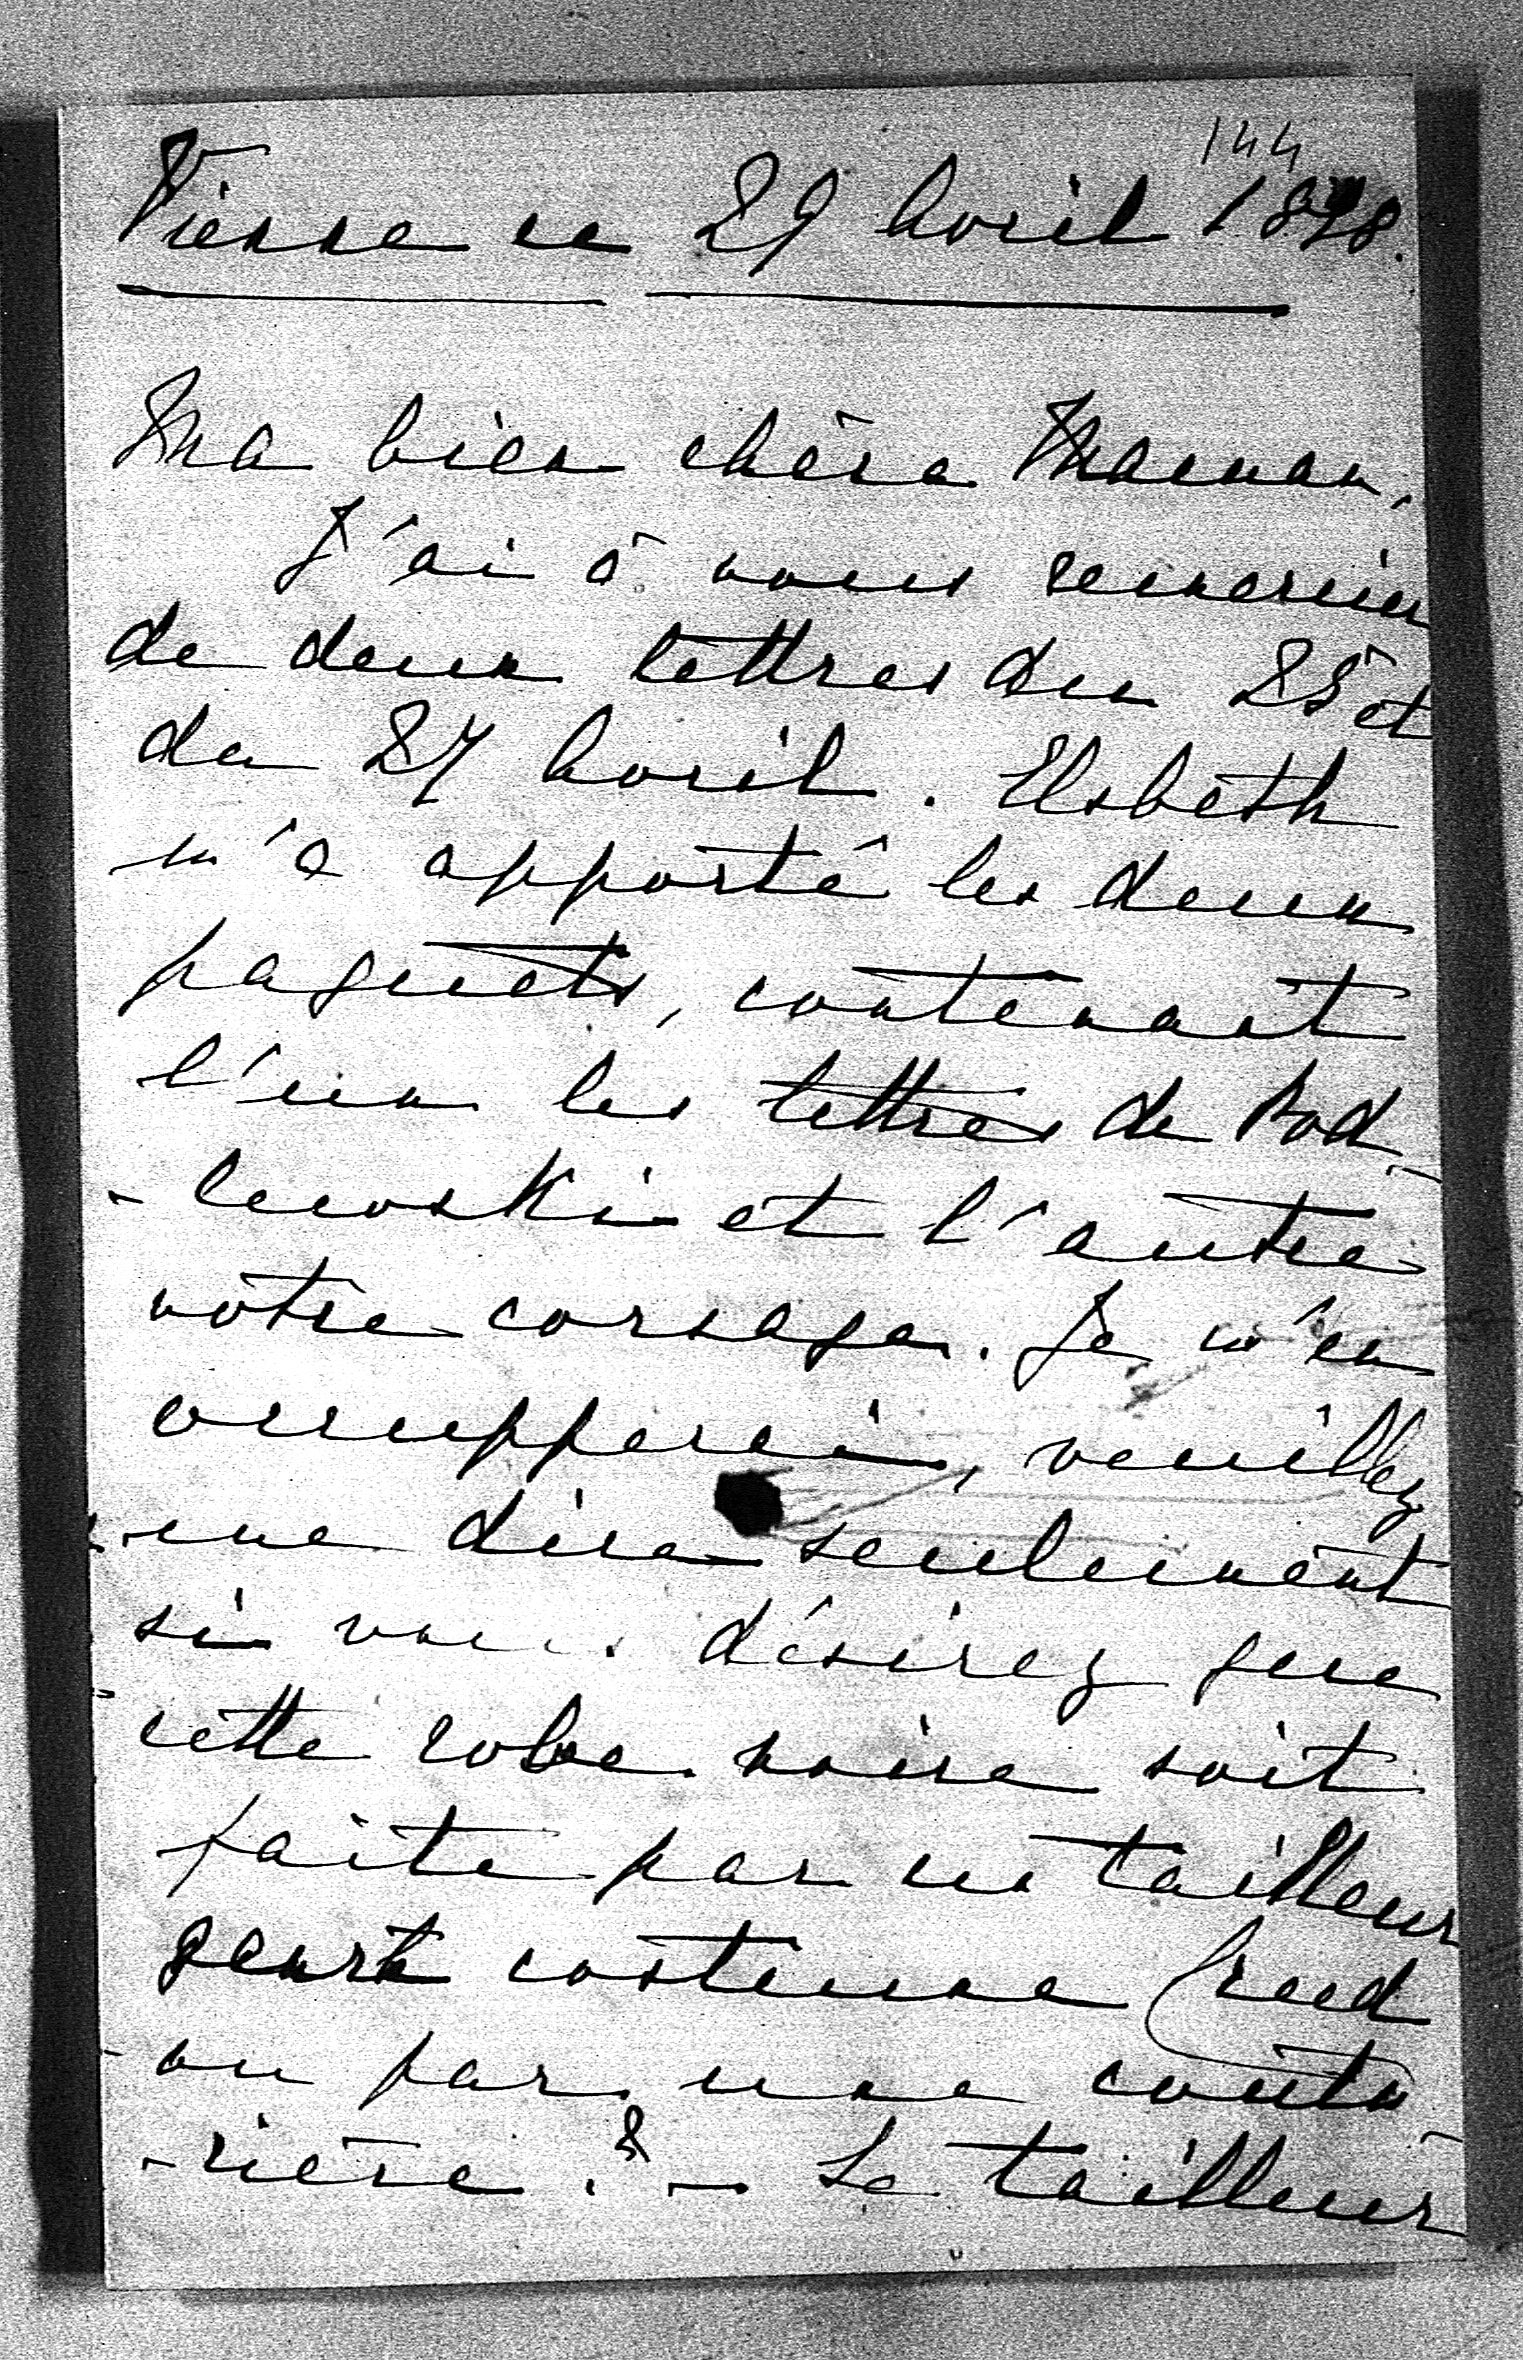 144
Vienne ce 29 Avril 1898.
Ma bien chère Maman,
J'ai à vous remercier
de deux lettres du 25 et
du 27 Avril. Elsbeth
m'a apporté les deux
paquets, contenant
l'un les lettres de Pod-
-lewski et l'autre
votre corsage. Je m'en
occupperai, veuillez
me dire seulement
si vous désirez que
cette robe noire soit
faite par un tailleur
genre costume Creed
ou par une coutu
-rière ? - Le tailleur